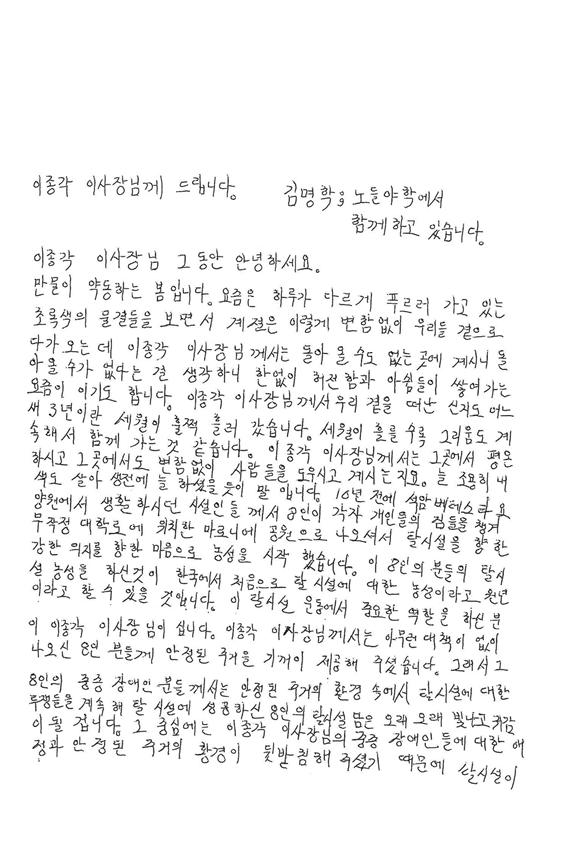 이종각 이사장님께 드립니다.
김명학; 노들야학에서
함께하고 있습니다.
이종각 이사장님 그동안 안녕하세요.
만물이 약동하는 봄입니다. 요즘은 하루가 다르게 푸르러 가고 있는
초록색의 물결들을 보면서 계절은 이렇게 변함없이 우리들 곁으로
다가 오는데 이종각 이사장님께서는 돌아 올 수도 없는 곳에 계시니 돌
아올 수가 없다는 걸 생각하니 한없이 허전함과 아쉼들이 쌓여가는
요즘이 이기도 합니다. 이종각 이사장님께서 우리 곁을 떠난 신지도 어느
새 3년이란 세월이 훌쩍 흘러 갔습니다. 세월이 흘를 수록 그리움도 계
속해서 함께 가는 것 같습니다. 이종각 이사장님께서는 그곳에서 평온
하시고 그곳에서도 변함없이 사람들을 도우시고 계시는지요. 늘 조용히 내
색도 살아 생전에 늘 하셨을듯이 말입니다. 16년 전에 석암베데스타요
양원에서 생활하시던 시설인들께서 8인이 각자 개인물의 짐들을 챙겨
무작정 대학로에 위치한 마로니에 공원으로 나오셔서 탈시설을 향한
강한 의지를 향한 마음으로 농성을 시작 했습니다. 이 8인의 분들의 탈시
설 농성을 하신것이 한국에서 처음으로 탈시설에 대한 농성이라고 원년
이라고 할 수 있을 것입니다. 이 탈시설 운동에서 중요한 역할을 하신 분
이 이종각 이사장님이십니다. 이종각 이사장님께서는 아무런 대책이 없이
나오신 8인 분들께 안정된 주거을 기꺼이 제공해 주셨습니다. 그래서 그
8인의 중증 장애인 분들께서는 안정된 주거의 환경 속에서 탈시설에 대한
투쟁들을 계속해 탈시설에 성공하신 8인의 탈시설 몸은 오래 오래 빛나고 귀감
이 될 겁니다. 그 중심에는 이종각 이사장님의 중증 장애인들에 대한 애
정과 안정된 주거의 환경이 뒷받침해 주셨기 때문에 탈시설이